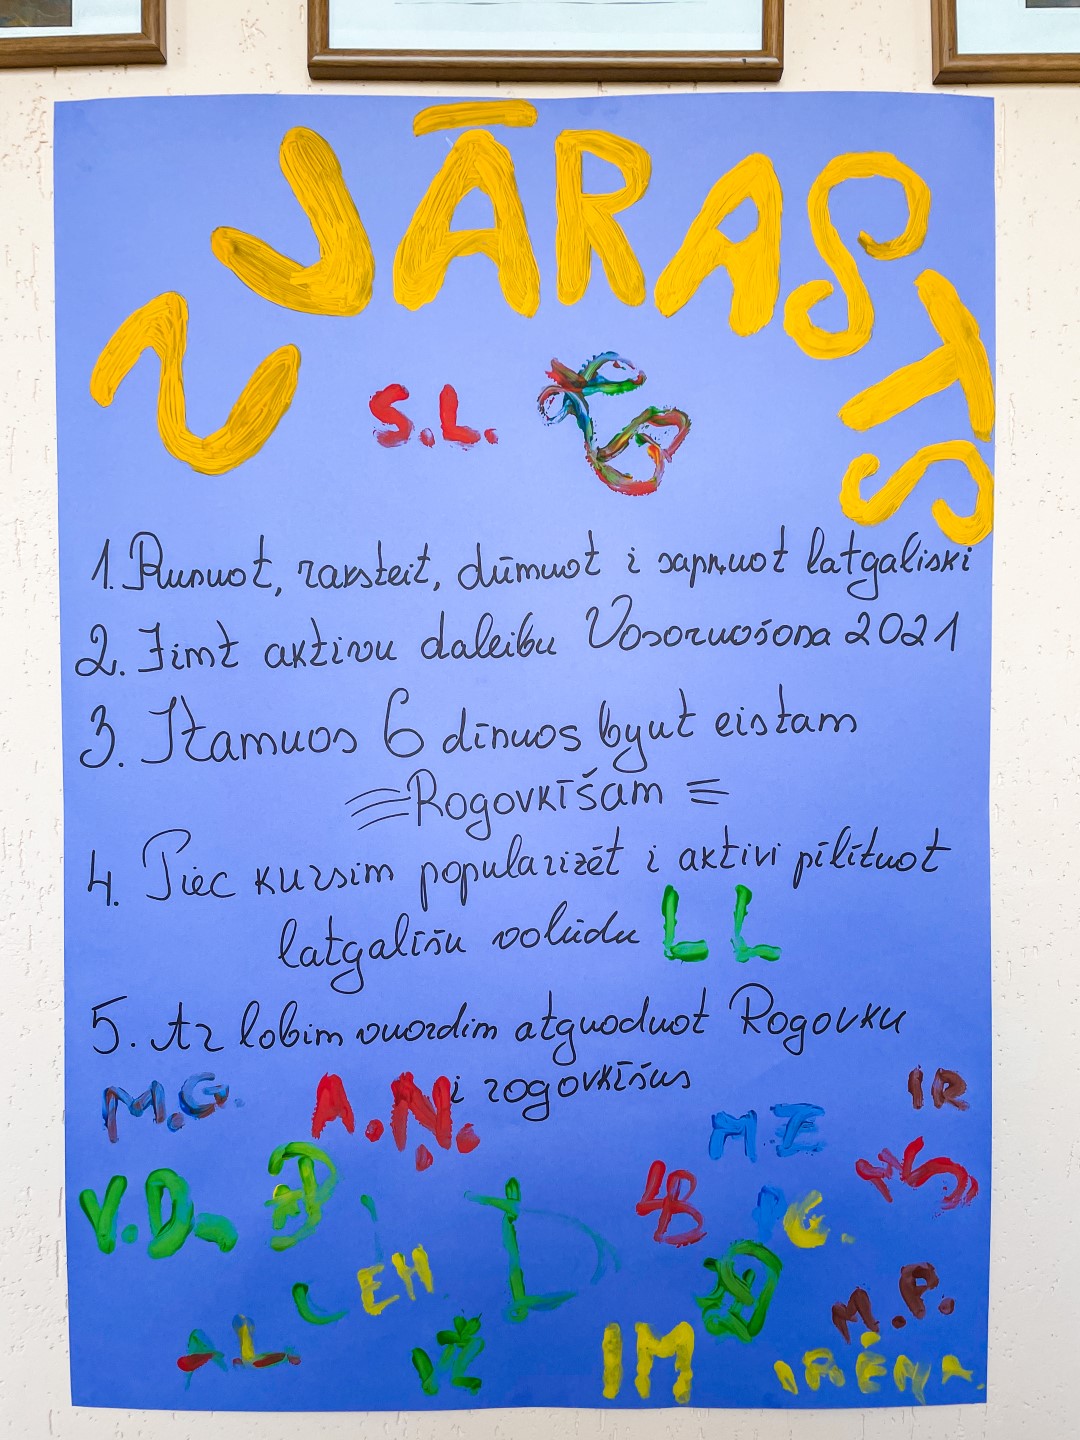 ZVĀRASTS
S.L.
1. Runuot, raksteit, dūmuot i sapņuot latgaliski
2. Jimt aktivu daleibu Vosoruošona 2021
3. Itamuos 6 dīnuos byut eistam
Rogovkīšam
4. Piec kursim popularizēt i aktivi pīlītuot
latgalīšu volūdu LL
5. Ar lobim vuordim atguoduot Rogovku
i rogovkīšus
M.G. A.Ņ. IR
MZ
V.D. LB MS
P G.
EH
M.P.
AL IŽ IM IRĒNA.